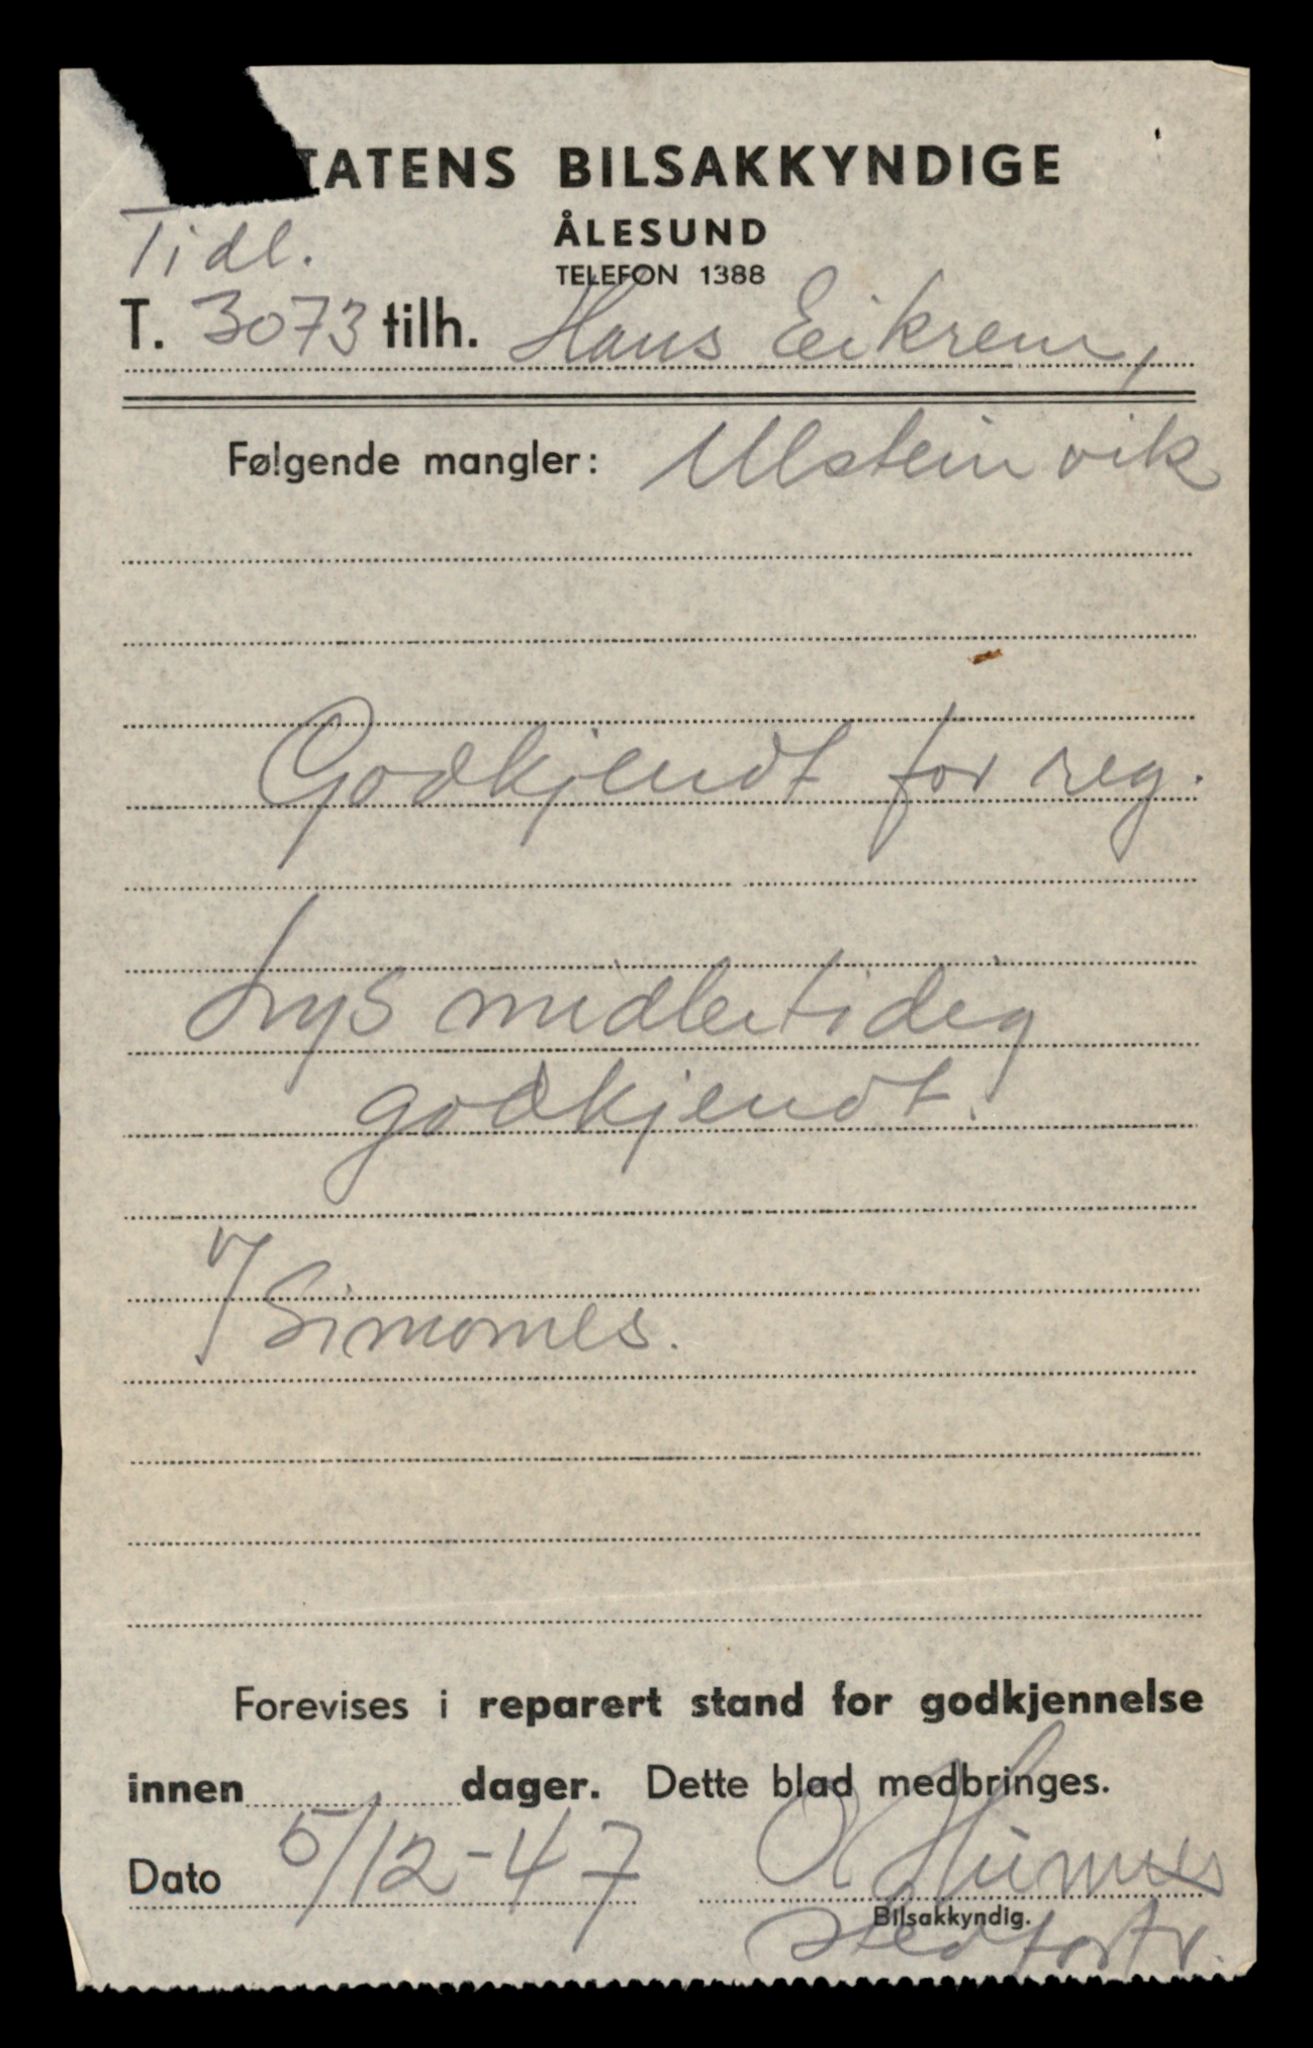 TATENS BILSAKKYNDIGE
ÅLESUND
TELEFON 1388
Tidl.
T. 3073 tilh. Hans Eikrem,
Følgende mangler: Ulsteinvik
Godkjendt for reg.
Lys midlertidig
godkjendt.
V/ Simones.
Forevises i reparert stand for godkjennelse
innen dager. Dette blad medbringes.
Dato 5/12-47
Bilsakkyndig.
stedfortr.